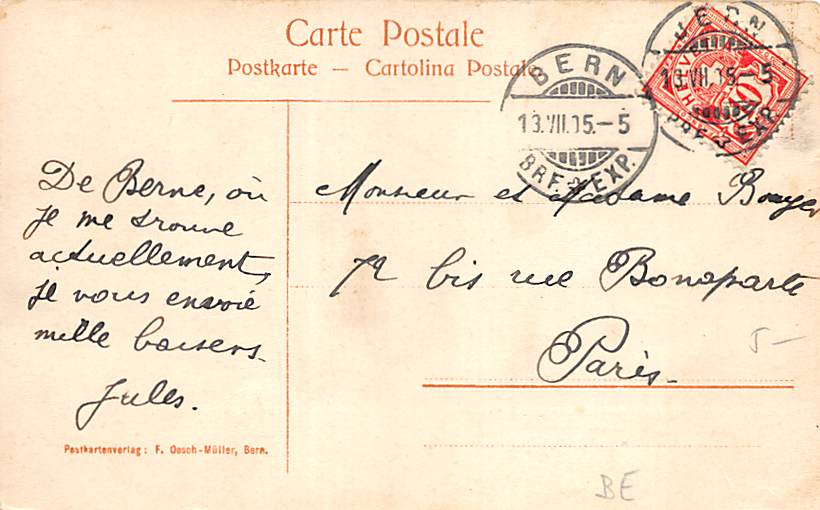 Carte Postale
Postkarte — Cartolina Postale
BERN
13.VII.05.-5
BRF. EXP.
BERN
13.VII.05.-5
BRF. EXP.
De Berne, où
je me trouve
actuellement,
je vous envoie
mille baisers.
Jules.
Monsieur et Madame Bouyer
72 bis rue Bonaparte
Paris.
5-
Postkartenverlag: F. Oesch-Müller, Bern.
BE